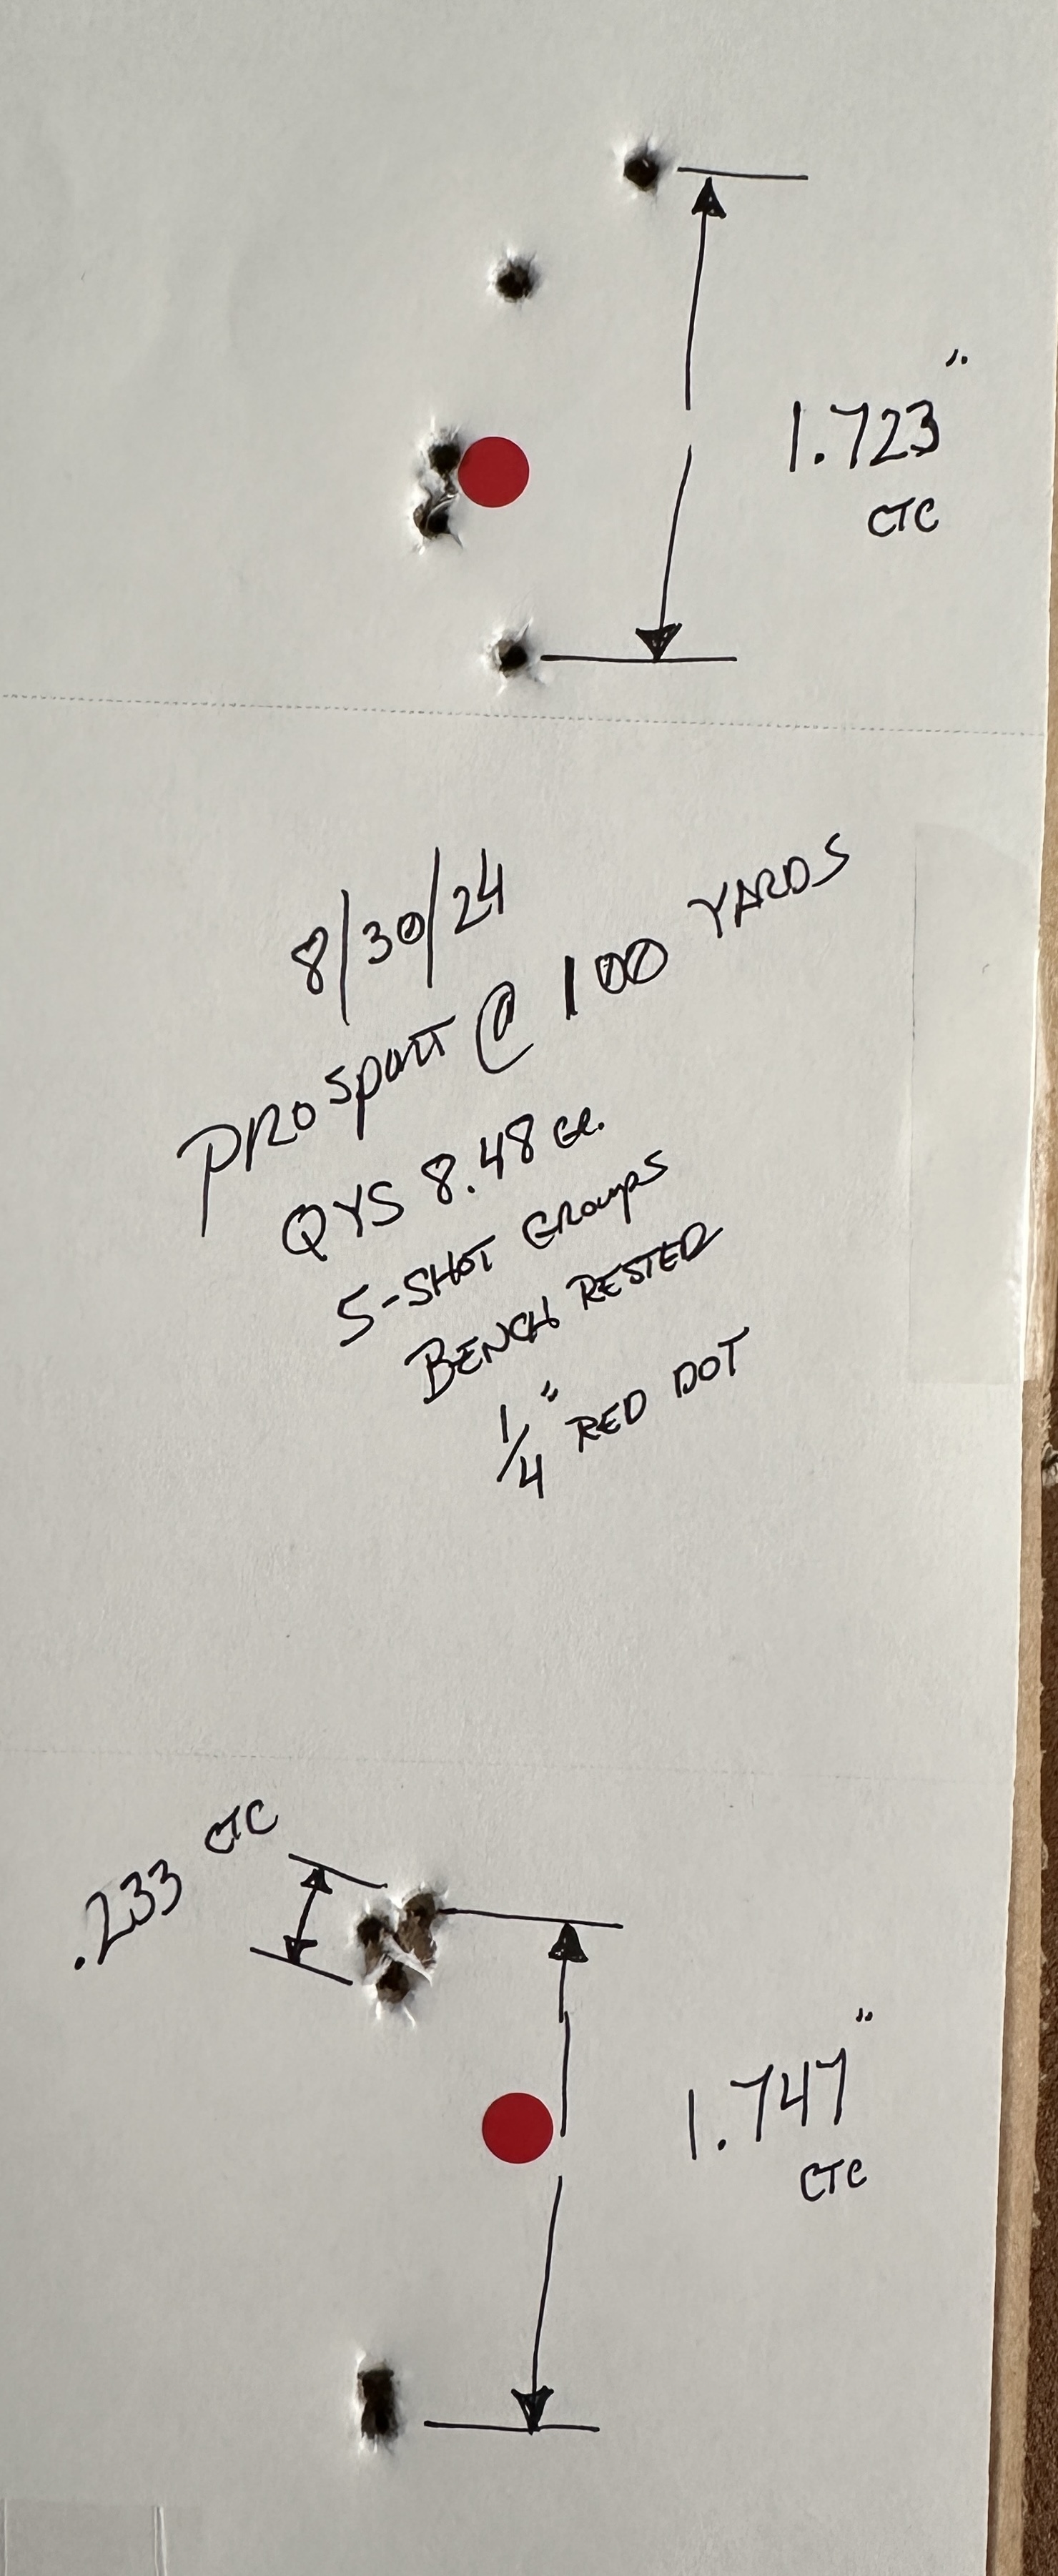 1.723"
CTC
8/30/24
PROSPORT @ 100 YARDS
QYS 8.48 GR.
5-SHOT GROUPS
BENCH RESTED
1/4" RED DOT
.233 CTC
1.747"
CTC